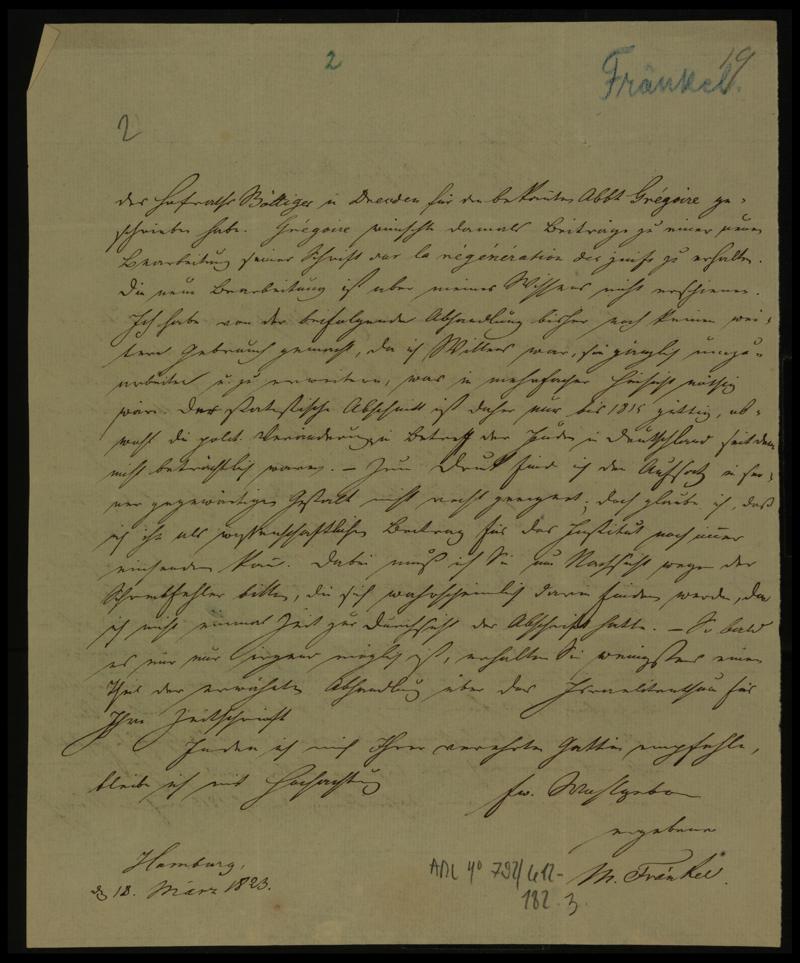 19
2
Fränkel.
2
des Hofraths Böttiger in Dresden für den bekannten Abbt Grégoire ge-
schrieben habe. Grégoire wünschte damals Beiträge zu einer neuen
Bearbeitung seiner Schrift sur la régénération des juifs zu erhalten.
Die neue Bearbeitung ist aber meines Wissens nicht erschienen.
Ich habe von der beifolgenden Abhandlung bisher noch keinen wei-
tern Gebrauch gemacht, da ich Willens war, sie gänzlich umzu-
arbeiten u. zu erweitern, was in mehrfacher Hinsicht nöthig
wäre. Der statistische Abschnitt ist daher nur bis 1815 gültig, ob-
wohl die polit. Veränderungen in Betreff der Juden in Deutschland seitdem
nicht beträchtlich waren. – Zum Druck find ich den Aufsatz in sei-
ner gegenwärtigen Gestalt nicht recht geeignet; doch glaube ich, daß
ich ihn als wissenschaftlichen Beitrag für das Institut noch immer
einsenden kann. Dabei muß ich Sie um Nachsicht wegen der
Schreibfehler bitten, die sich wahrscheinlich darin finden werden, da
ich nicht einmal Zeit zur Durchsicht der Abschrift hatte. – So bald
es mir nur irgend möglich ist, erhalten Sie wenigstens einen
Theil der erwähnten Abhandlung über das Israelitenthum für
Ihre Zeitschrift
Indem ich mich Ihrer verehrten Gattin empfehle,
bleibe ich mit Hochachtung
Ew. Wohlgeboren
ergebener
M. Fränkel.
Hamburg,
d. 18. März 1823.
182 3